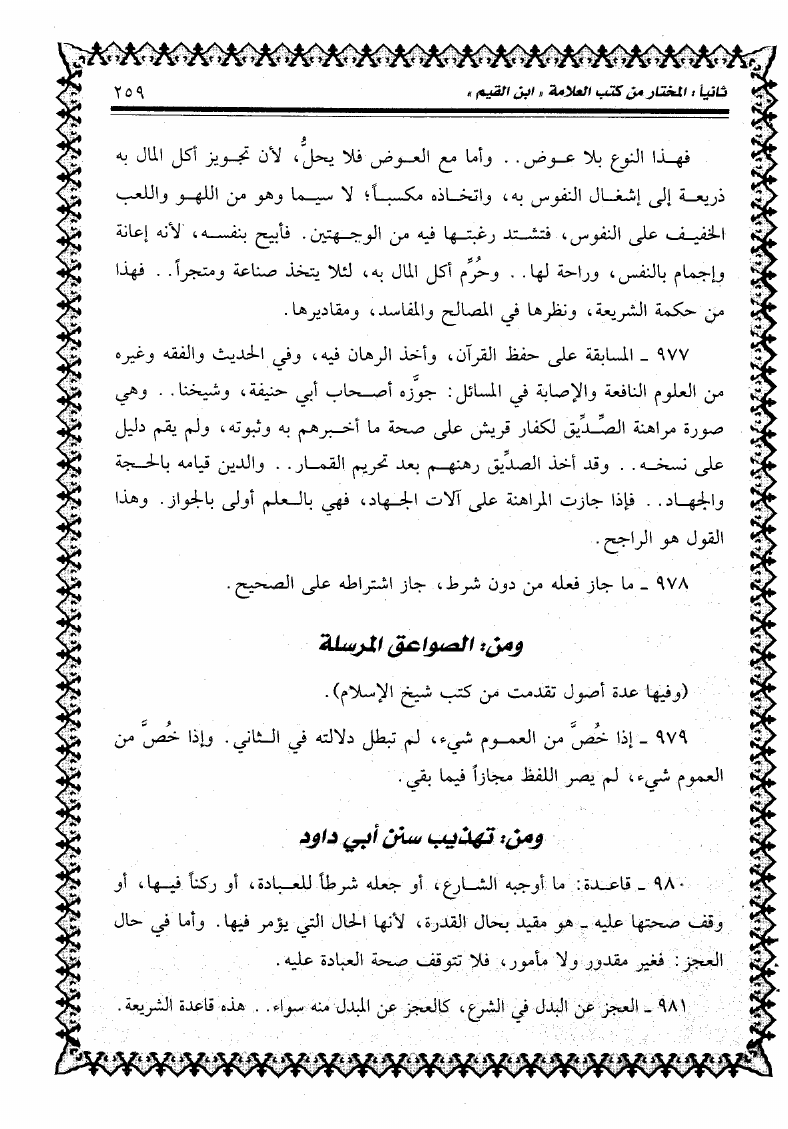 ثانياً : المختار من كتب العلامة « ابن القيم » ٢٥٩
فهـذا النوع بلا عـوض. . وأما مع العـوض فلا يحلُّ، لأن تجـويز أكل المال به
ذريعـة إلى إشغـال النفوس به، واتخـاذه مكسبـاً؛ لا سيـما وهو من اللهـو واللعب
الخفيـف على النفوس، فتشـتد رغبتـها فيه من الوجـهتين. فأبيح بنفسـه، لأنه إعانة
وإجمام بالنفس، وراحة لها. . وحُرِّم أكل المال به، لئلا يتخذ صناعة ومتجراً. . فهذا
من حكمة الشريعة، ونظرها في المصالح والمفاسد، ومقاديرها.
٩٧٧ ـ المسابقة على حفظ القرآن، وأخذ الرهان فيه، وفي الحديث والفقه وغيره
من العلوم النافعة والإصابة في المسائل: جوَّزه أصـحاب أبي حنيفة، وشيخنا. . وهي
صورة مراهنة الصِّـدِّيق لكفار قريش على صحة ما أخـبرهم به وثبوته، ولم يقم دليل
على نسخـه. . وقد أخذ الصدِّيق رهنهـم بعد تحريم القمـار. . والدين قيامه بالحـجة
والجهـاد. . فإذا جازت المراهنة على آلات الجـهاد، فهي بالـعلم أولى بالجواز. وهذا
القول هو الراجح.
٩٧٨ ـ ما جاز فعله من دون شرط، جاز اشتراطه على الصحيح.
ومن: الصواعق المرسلة
(وفيها عدة أصول تقدمت من كتب شيخ الإسلام).
٩٧٩ ـ إذا خُصَّ من العمـوم شيء، لم تبطل دلالته في الـثاني. وإذا خُصَّ من
العموم شيء، لم يصر اللفظ مجازاً فيما بقي.
ومن: تهذيب سنن أبي داود
٩٨٠ ـ قاعـدة: ما أوجبه الشـارع، أو جعله شرطاً للعـبادة، أو ركناً فيـها، أو
وقف صحتها عليه ـ هو مقيد بحال القدرة، لأنها الحال التي يؤمر فيها. وأما في حال
العجز: فغير مقدور ولا مأمور، فلا تتوقف صحة العبادة عليه.
٩٨١ ـ العجز عن البدل في الشرع، كالعجز عن المبدل منه سواء. . هذه قاعدة الشريعة.